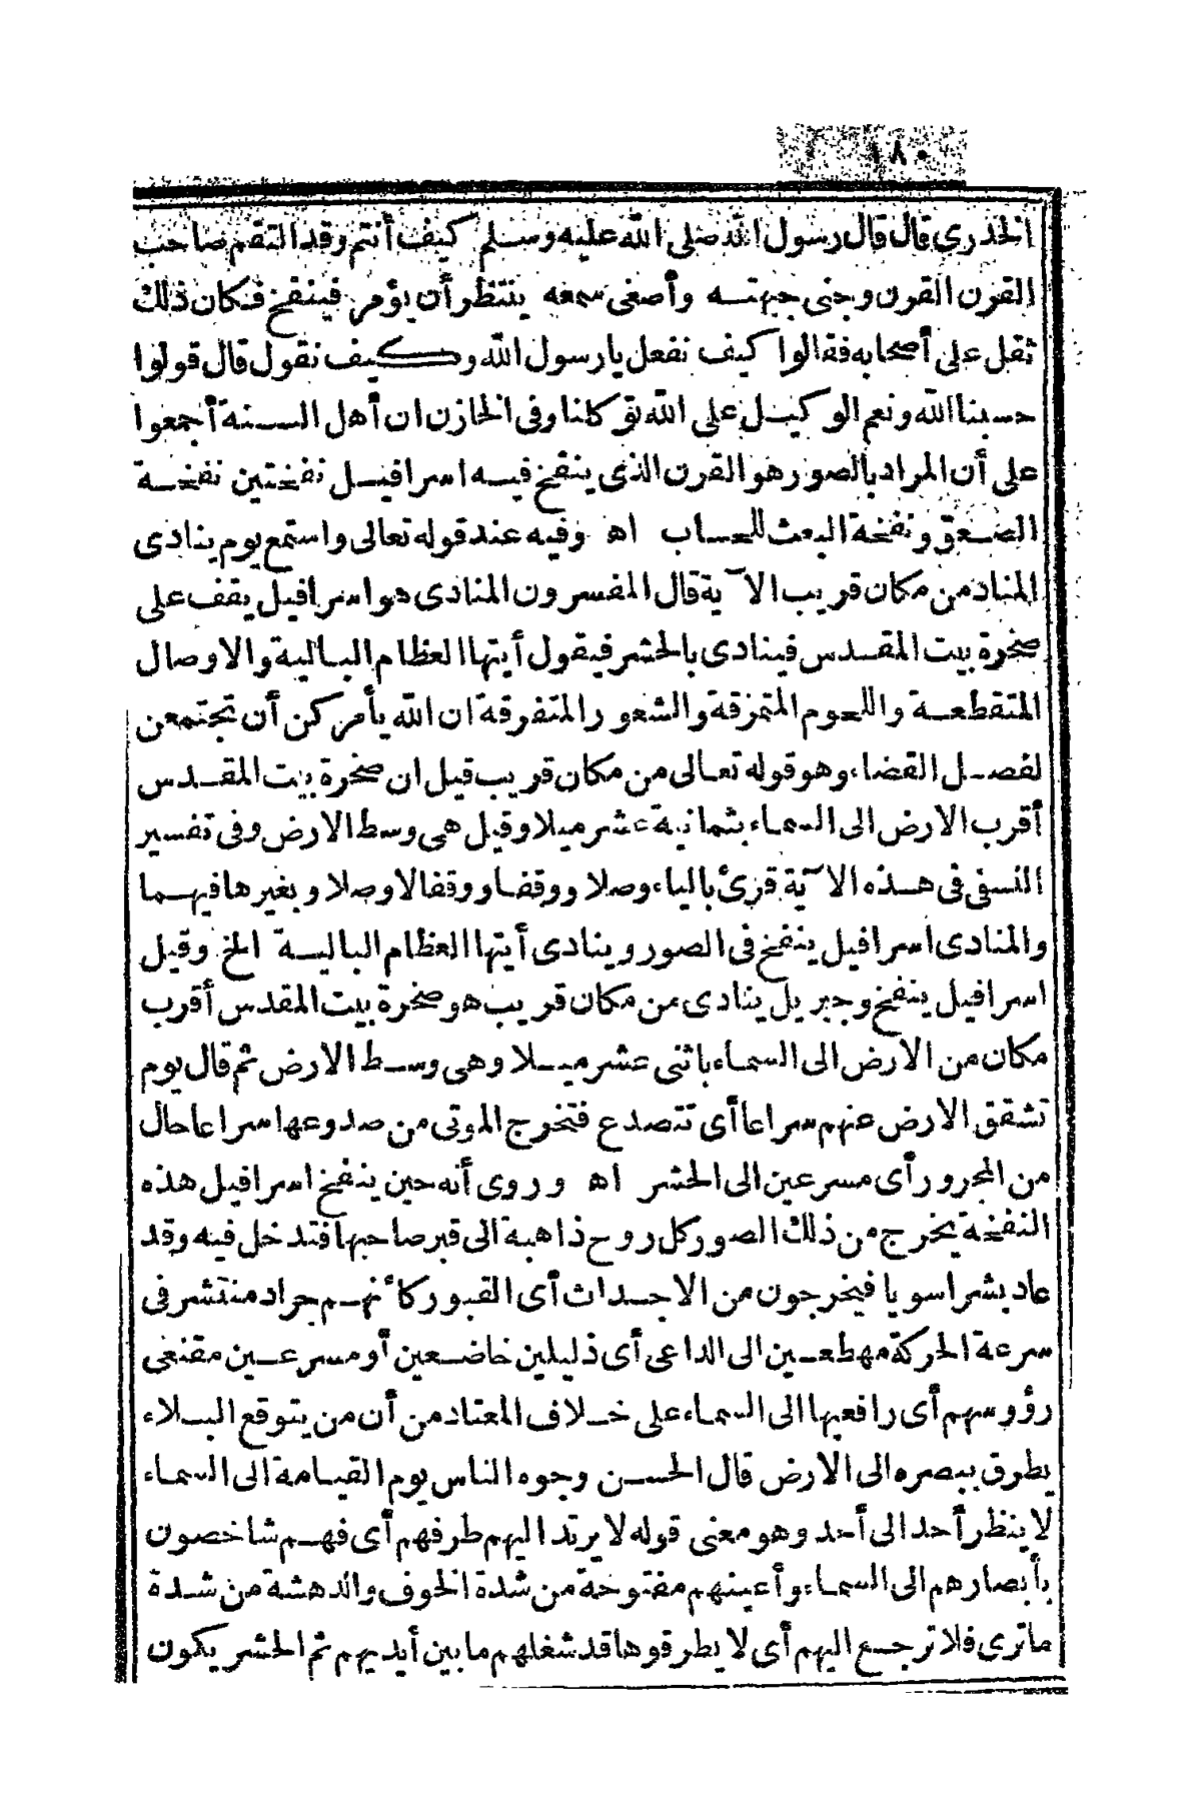 ١٨٠
الخدري قال قال رسول الله صلى الله عليه وسلم كيف أنتم وقد التقم صاحب
القرن القرن وحنى جبهته وأصغى سمعه ينتظر أن يؤمر فينفخ فكان ذلك
ثقل على أصحابه فقالوا كيف نفعل يا رسول الله وكيف نقول قال قولوا
حسبنا الله ونعم الوكيل على الله توكلنا وفى الخازن ان أهل السنة أجمعوا
على أن المراد بالصور هو القرن الذى ينفخ فيه اسرافيل نفختين نفخة
الصعق ونفخة البعث للحساب اه وفيه عند قوله تعالى واستمع يوم ينادى
المناد من مكان قريب الآية قال المفسرون المنادى هو اسرافيل يقف على
صخرة بيت المقدس فينادى بالحشر فيقول أيتها العظام البالية والاوصال
المتقطعة واللحوم المتمزقة والشعور المتفرقة ان الله يأمركن أن تجتمعن
لفصل القضاء وهو قوله تعالى من مكان قريب قيل ان صخرة بيت المقدس
أقرب الارض الى السماء بثمانية عشر ميلا وقيل هى وسط الارض وفى تفسير
النسفى فى هذه الآية قرئ بالياء وصلا ووقفا ووقفا لا وصلا وبغيرها فيهما
والمنادى اسرافيل ينفخ فى الصور وينادى أيتها العظام البالية الخ وقيل
اسرافيل ينفخ وجبريل ينادى من مكان قريب هو صخرة بيت المقدس أقرب
مكان من الارض الى السماء باثنى عشر ميلا وهى وسط الارض ثم قال يوم
تشقق الارض عنهم سراعا أى تتصدع فتخرج الموتى من صدوعها سراعا حال
من المجرور أى مسرعين الى الحشر اه وروى أنه حين ينفخ اسرافيل هذه
النفخة يخرج من ذلك الصور كل روح ذاهبة الى قبر صاحبها فتدخل فيه وقد
عاد بشرا سويا فيخرجون من الاجداث أى القبور كأنهم جراد منتشر فى
سرعة الحركة مهطعين الى الداعى أى ذليلين خاضعين أو مسرعين مقنعى
رؤوسهم أى رافعيها الى السماء على خلاف المعتاد من أن من يتوقع البلاء
يطرق ببصره الى الارض قال الحسن وجوه الناس يوم القيامة الى السماء
لا ينظر أحد الى أحد وهو معنى قوله لا يرتد اليهم طرفهم أى فهم شاخصون
بأبصارهم الى السماء وأعينهم مفتوحة من شدة الخوف والدهشة من شدة
ما ترى فلا ترجع اليهم أى لا يطرقوها قد شغلهم ما بين أيديهم ثم الحشر يكون